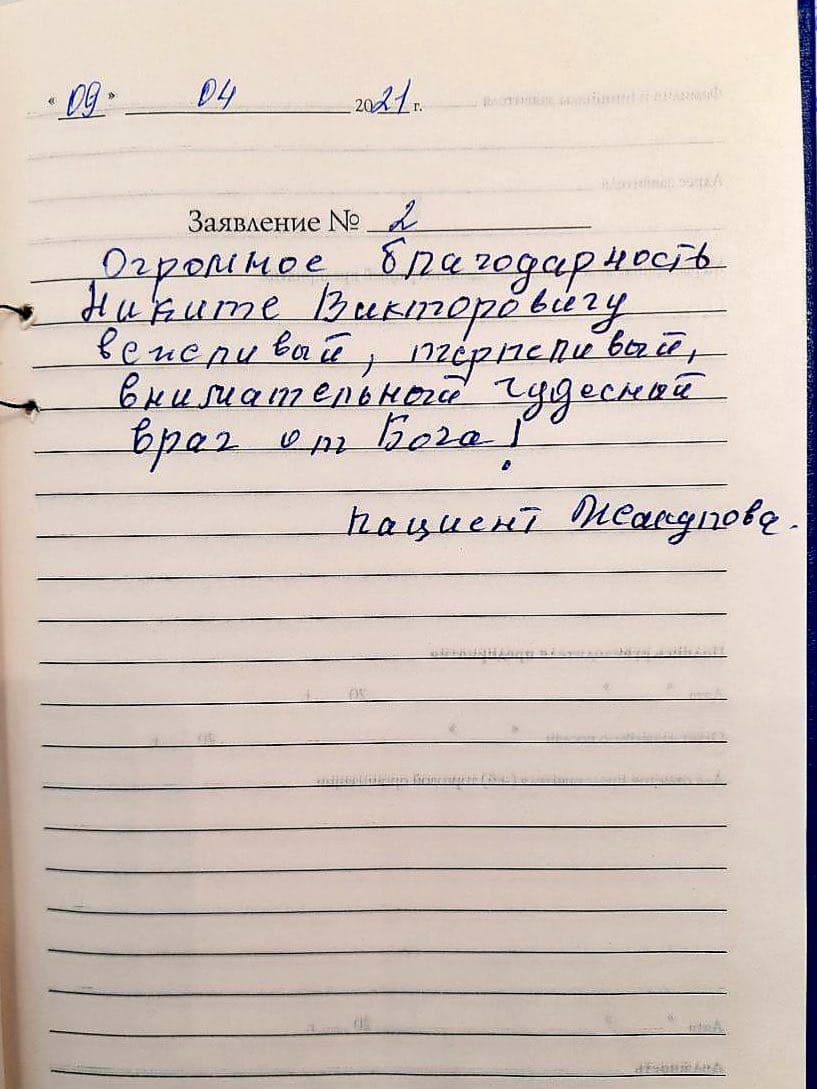 « 09 » 04 2021 г.
Заявление № 2
Огромное благодарность
Никите Викторовичу
вежеливый, терпеливый,
внимательный чудесный
врач от Бога!
пациент